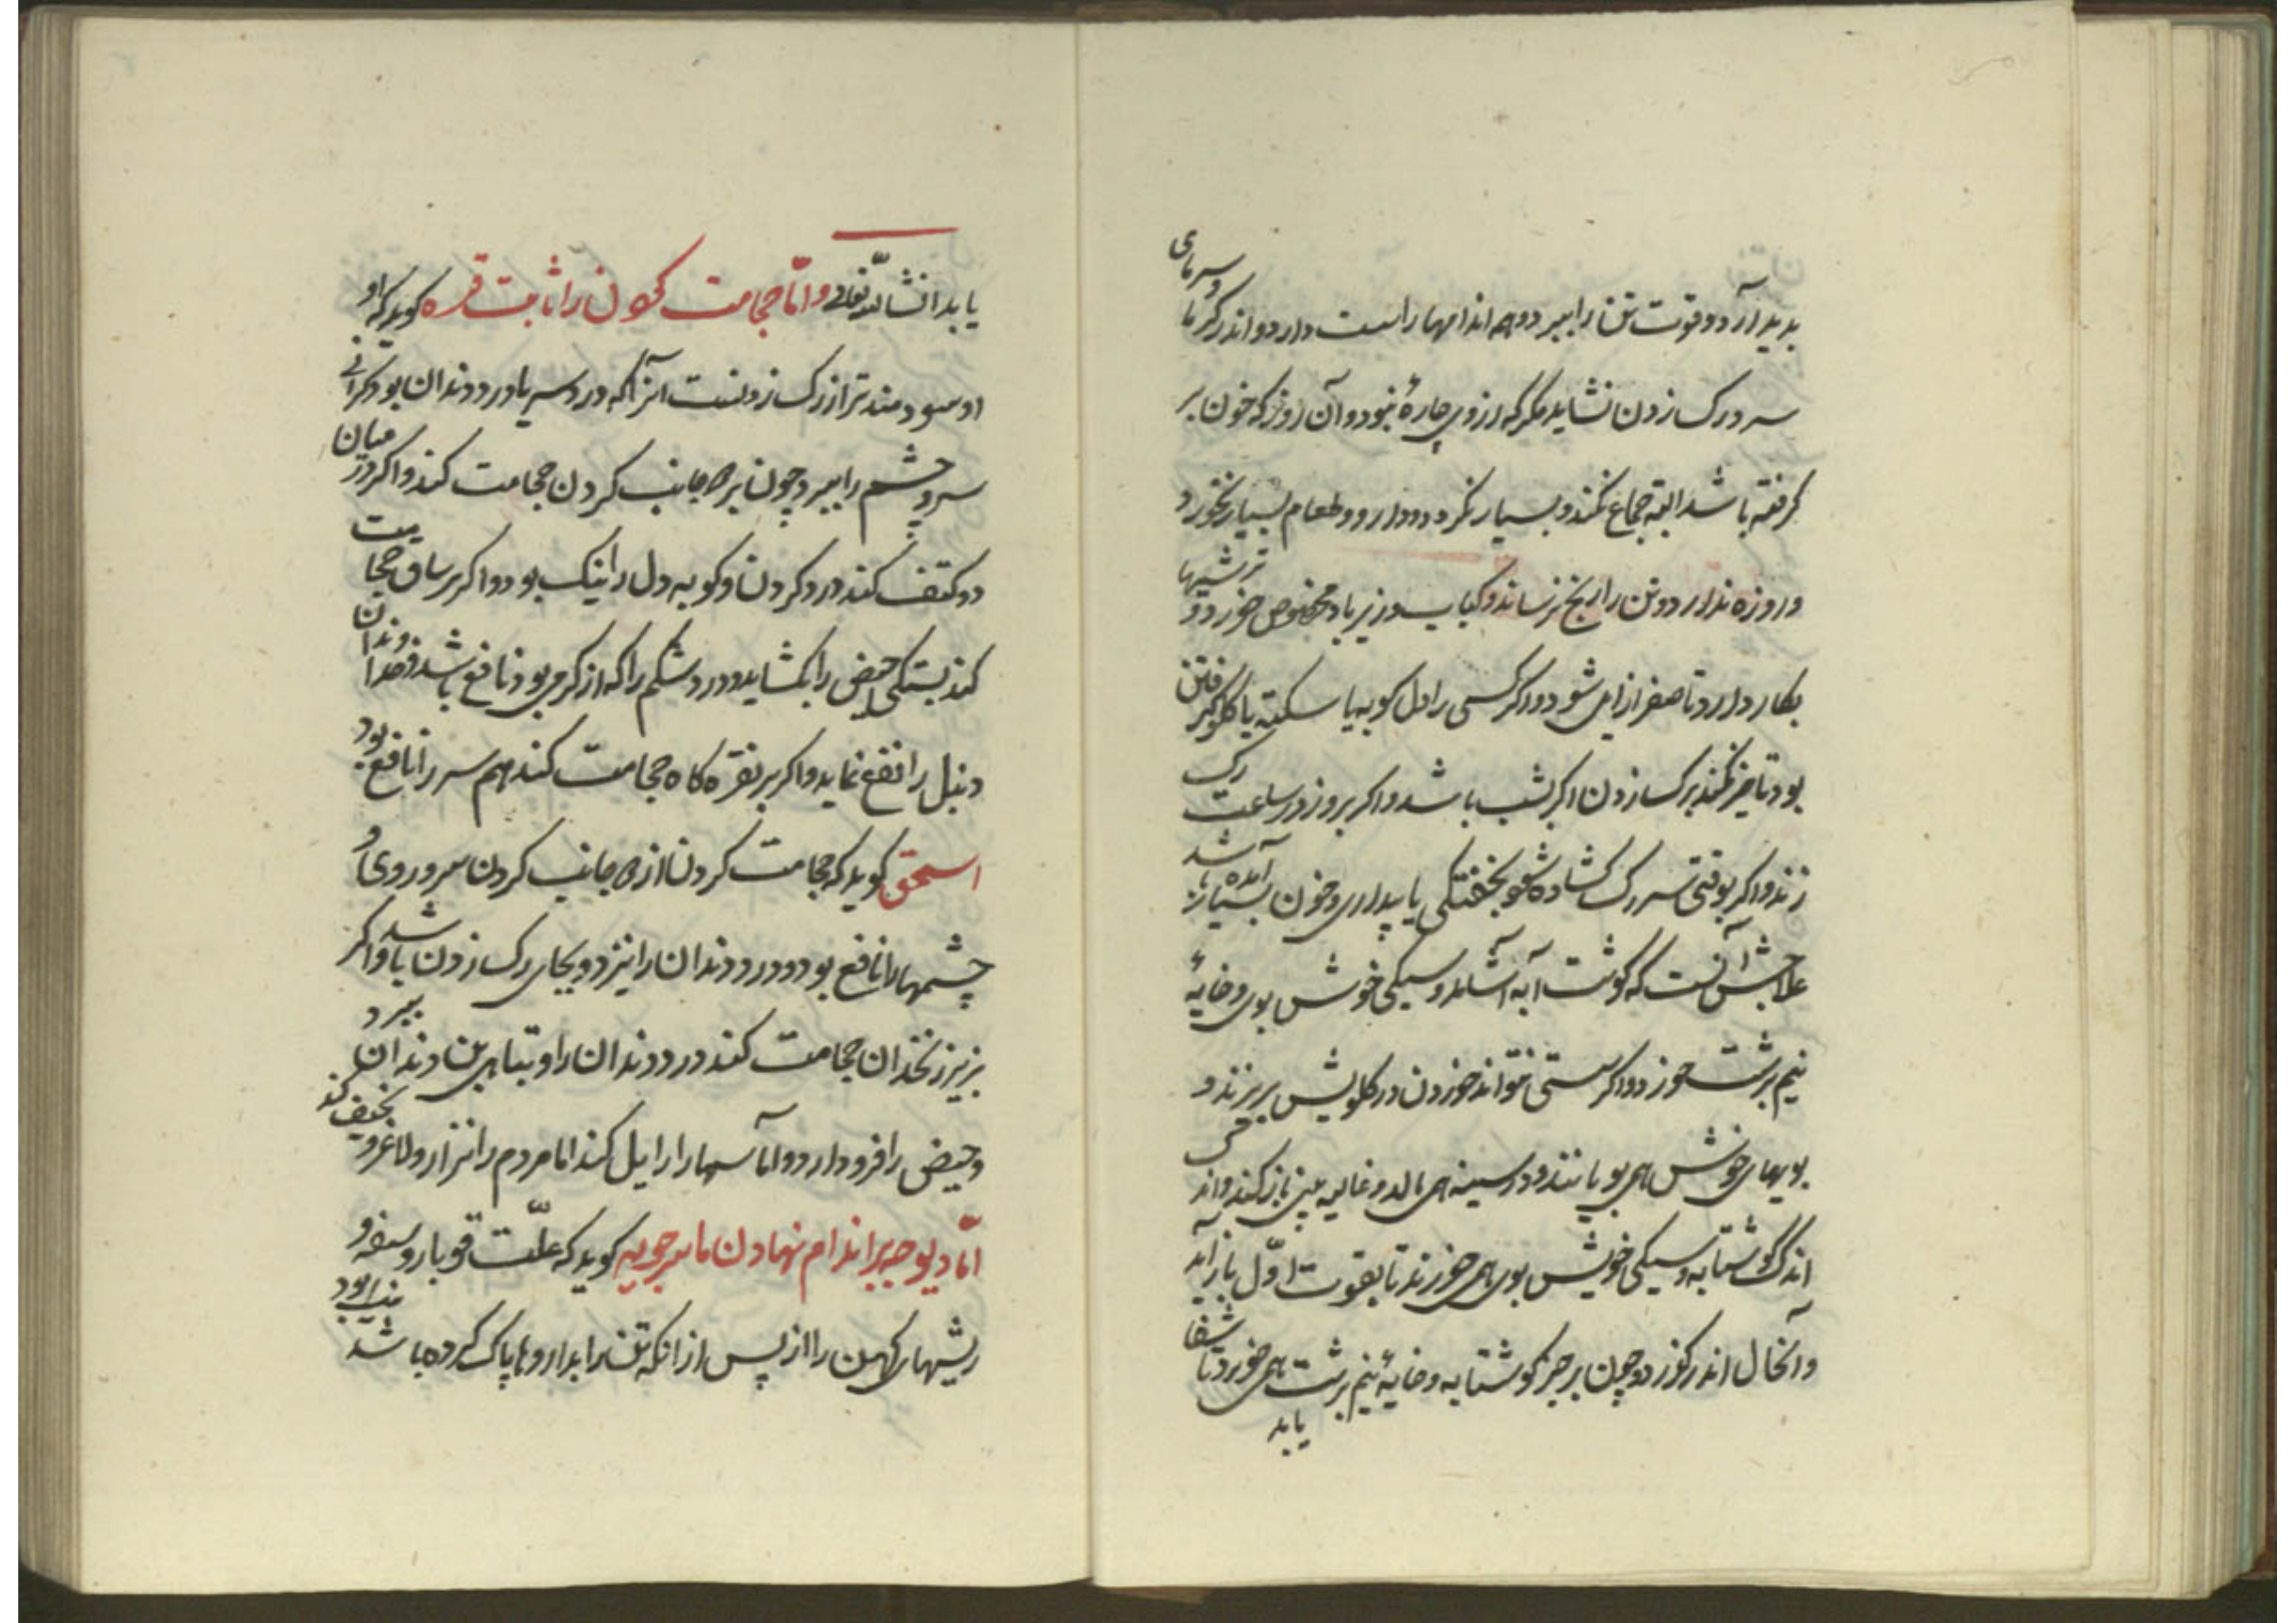 بدید آرد و قوت تن را ببرد و هم اندامها را سست دارد و اندر گرما و سرمای
سرد رک زدن نشاید مکر که از وی چارهٔ نبود و آن روز که خون بر
کرفته باشد البته جماع نکند و بسیار نکرد و دارو و طعام بسیار نخورد
و روزه ندارد و تن را رنج نرساند و کباب و زیرباد مخصوص خورد و ترشیها
بکار دارد تا صفرا زایل شود و اکر کسی را دل کوبه یا سکته یا کلو کرفتن
بود تاخیر نکند برک زدن اکر بشب باشد و اکر بروز در ساعت رک
زند و اکر بوقتی سر رک کشاده شود بخفتگی یا بیداری و خون بسیار آمده باشد
علاجش آنست که کوشت آبه آشامد و سیکی خوش بوی و خایهٔ
نیم برشت خورد و اکر سستی نتواند خوردن در کلویش بریزند و
بویهای خوش همی بویانند و در سینه همی مالد و غالیه بینی باز کند و اند
اندک کوشتابه و سیکی خویش بوی همی خورند تا بقوت اوّل باز آید
و آنحال اندر کوزد و چون بر خیزد کوشتابه و خایهٔ نیم برشت همی خورد تا شفا
یابد
یابد انشالله تعالی و امّا حجامت کردن را ثابت قره کوید که او
او سودمندتر از رک زدنست آنرا که درد سر یا درد دندان بود و کرانی
سر و چشم را ببرد چون بر هر جانب کردن حجامت کنند و اکر در میان
دو کتف کنند درد کردن و کوبه دل را نیک بود و اکر بر ساق حجامت
کنند بستکی حیض را بکشاید و درد شکم را که از کرمی بود نافع باشد و دندان
دنبل را نفع نماید و اکر بر نقره کاه حجامت کنند هم سر را نافع بود
اسحق کوید که حجامت کردن از هر جانب کردن سر و روی و
چشمها را نافع بود و درد دندان را نیز و بجای رک زدن باشد و اکر
بر زیر زنخدان حجامت کنند درد دندان را و تباهی بن دندان ببرد
و حیض را فرود آرد و اماسها را زایل کند اما مردم را نزار و لاغر و نحیف کند
امّا دیوچه بر اندام نهادن ماسرجویه کوید که علّت قوبا و سعفه و
ریشهای کهن را از پس از آنکه تن را بداروها پاک کرده باشد نیک بود